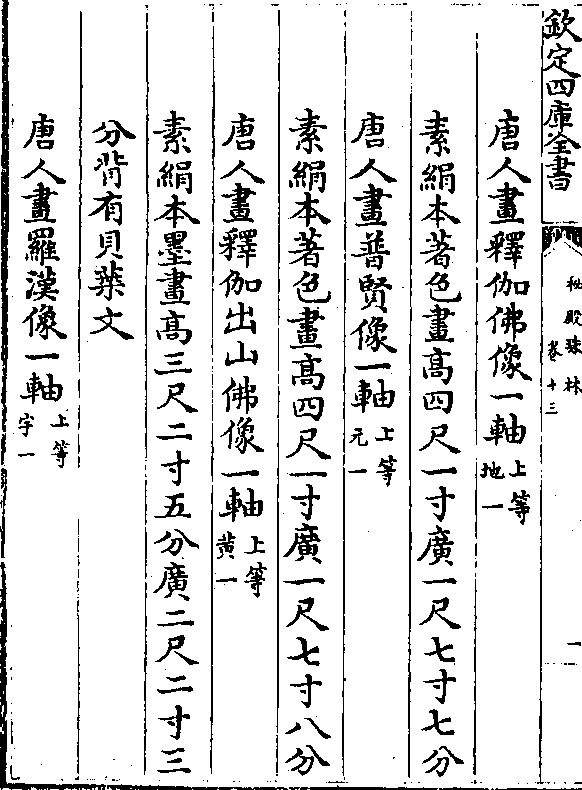 欽定四庫全書
秘殿珠林
卷十三
一
唐人畫釋伽佛像一軸上等
地一
素絹本著色畫高四尺一寸廣一尺七寸七分
唐人畫普賢像一軸上等
元一
素絹本著色畫高四尺一寸廣一尺七寸八分
唐人畫釋伽出山佛像一軸上等
黃一
素絹本墨畫高三尺二寸五分廣二尺二寸三
分背有貝葉文
唐人畫羅漢像一軸上等
宇一